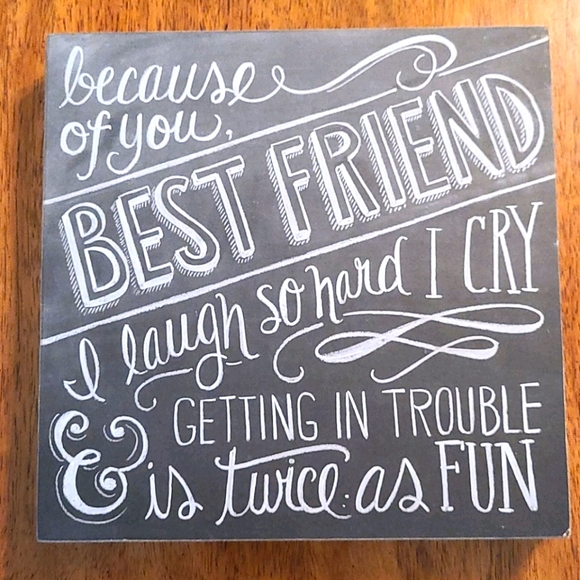 because
of you,
BEST FRIEND
I laugh so hard I CRY
& GETTING IN TROUBLE
is twice as FUN